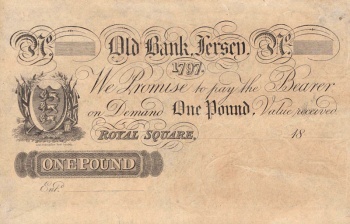 No. Old Bank, Jersey, No.
1797.
We Promise to pay the Bearer
on Demand One Pound, Value received
ROYAL SQUARE, 18
ONE POUND
Ent.